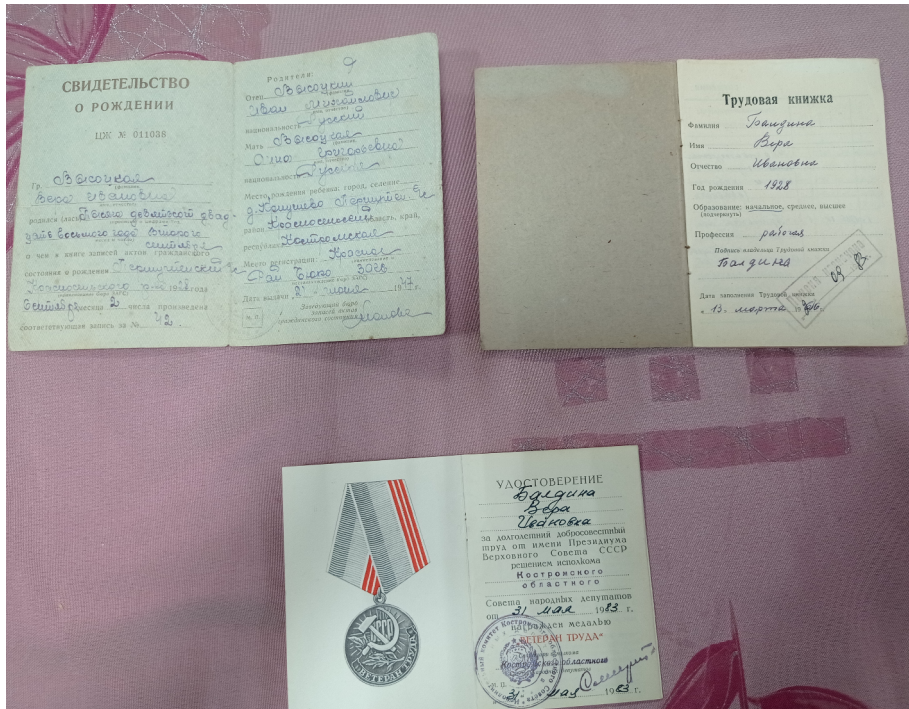 СВИДЕТЕЛЬСТВО
О РОЖДЕНИИ
ЦЖ № 011038
Гр. Высоцкая
Вера Ивановна
родился (лась) Тысяча девятьсот двад-
цать восьмого года второго
сентября
о чем в книге записей актов гражданского
состояния о рождении
года
сентября месяца 2 числа произведена
соответствующая запись за № 42
Родители:
Отец Высоцкий
Иван Михайлович
национальность Русский
Мать Высоцкая
Анна Григорьевна
национальность Русская
Место рождения ребенка, город, селение
д.
район Красносельский область, край,
республика Костромская
Место регистрации: Красносель
Рай Бюро ЗАГС
Дата выдачи 2 июля 1947
Заведующий бюро
записей актов
гражданского состояния
М. П.
Трудовая книжка
Фамилия Балдина
Имя Вера
Отчество Ивановна
Год рождения 1928
Образование: начальное, среднее, высшее
(подчеркнуть)
Профессия рабочая
Подпись владельца Трудовой книжки
Балдина
09 83
Дата заполнения Трудовой книжки
"13" марта
УДОСТОВЕРЕНИЕ
Балдина
Вера
Ивановна
за долголетний добросовестный
труд от имени Президиума
Верховного Совета СССР
решением исполкома
Костромского
областного
Совета народных депутатов
от 31 мая 1983 г.
награжден медалью
"ВЕТЕРАН ТРУДА"
Костромского областного
М. П.
31 мая 1983 г.
СССР
ВЕТЕРАН ТРУДА